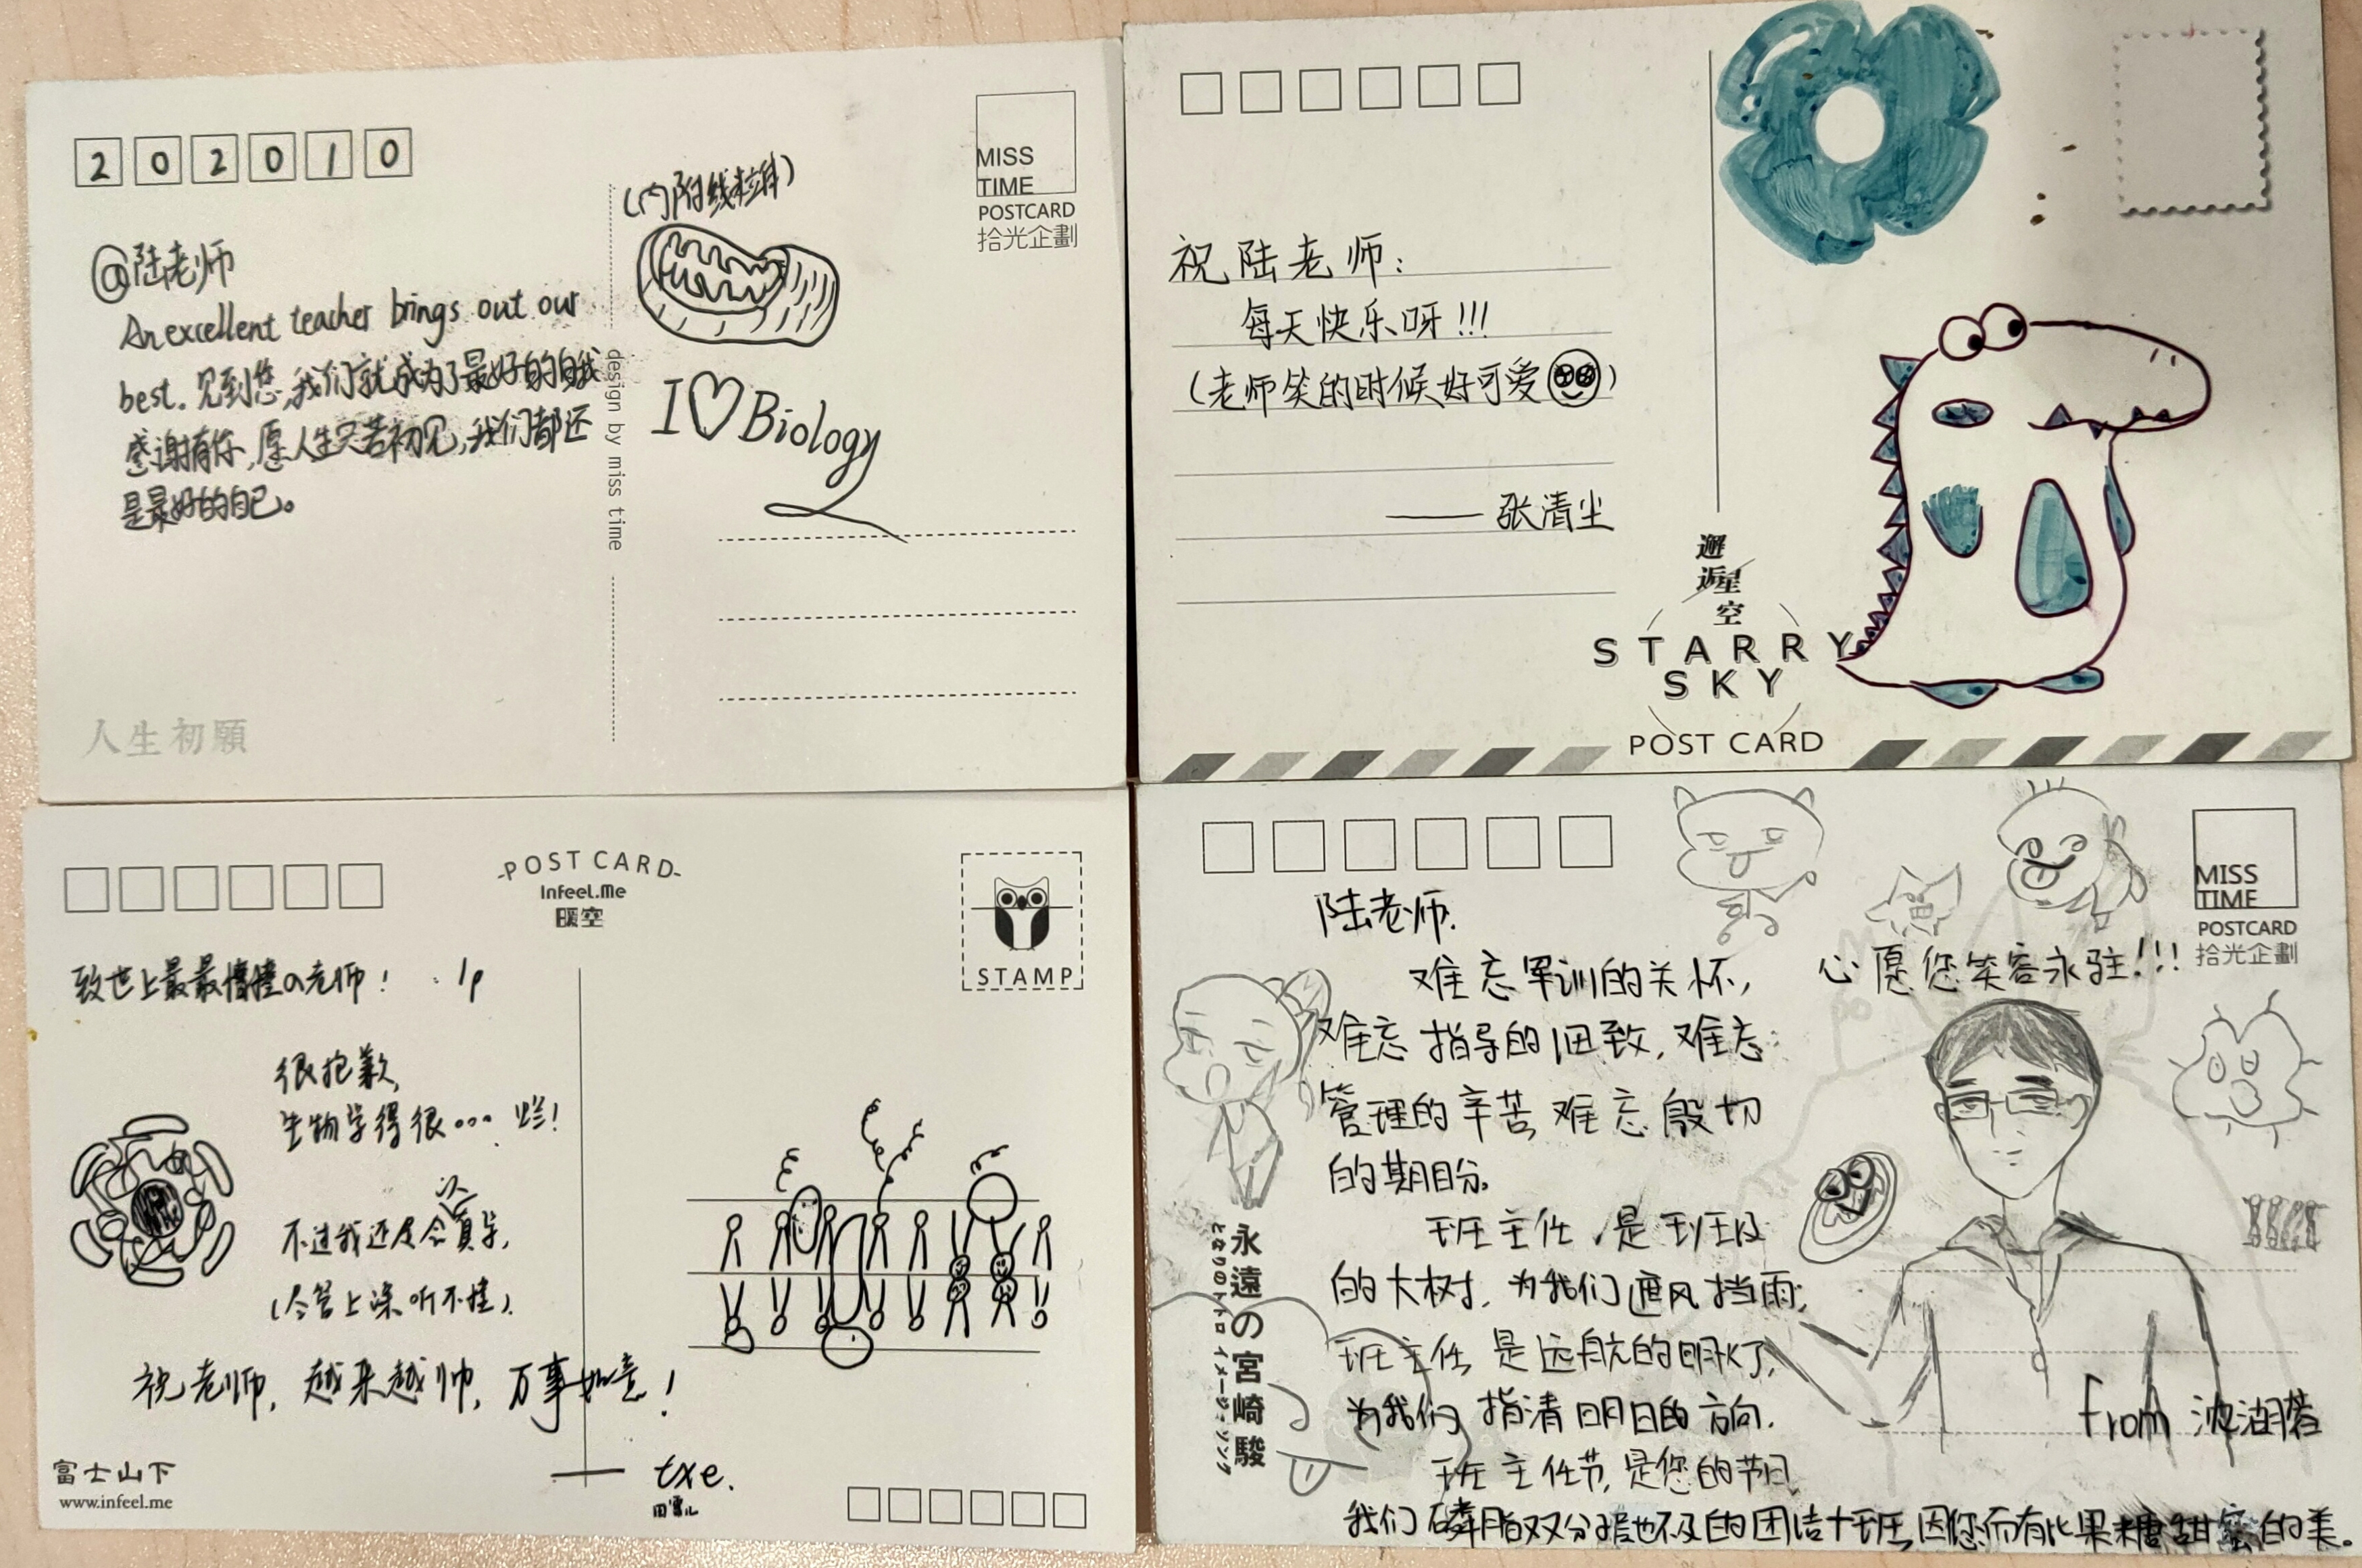 202010
(内附线粒体)
MISS
TIME
POSTCARD
拾光企劃
@陆老师
An excellent teacher brings out our
best. 见到您,我们就成为了最好的自我
感谢有你,愿人生只若初见,我们都还
是最好的自己。
I♡Biology
design by miss time
人生初願
祝陆老师:
每天快乐呀!!!
(老师笑的时候好可爱)
——张清尘
邂逅星空
STARRY
SKY
POST CARD
POST CARD
InFeeL.Me
暖空
STAMP
致世上最最棒的老师!
很抱歉,
生物学得很... 烂!
不过我还是会认真学,
(尽管上课听不懂).
祝老师,越来越帅,万事如意!
— txe.
富士山下
www.infeel.me
MISS
TIME
POSTCARD
拾光企劃
陆老师.
难忘军训的关怀,
难忘指导的细致,难忘
管理的辛苦,难忘殷切
的期盼。
班主任,是班级
的大树,为我们遮风挡雨;
班主任是远航的明灯,
为我们指清明日的方向.
班主任节,是您的节日,
我们磷脂双分子层也不及的团结十班,因您而有比果糖甜蜜的美。
心愿您笑容永驻!!!
from 沈湖
永遠の宮崎駿
となりのトトロ イメージ・ソング